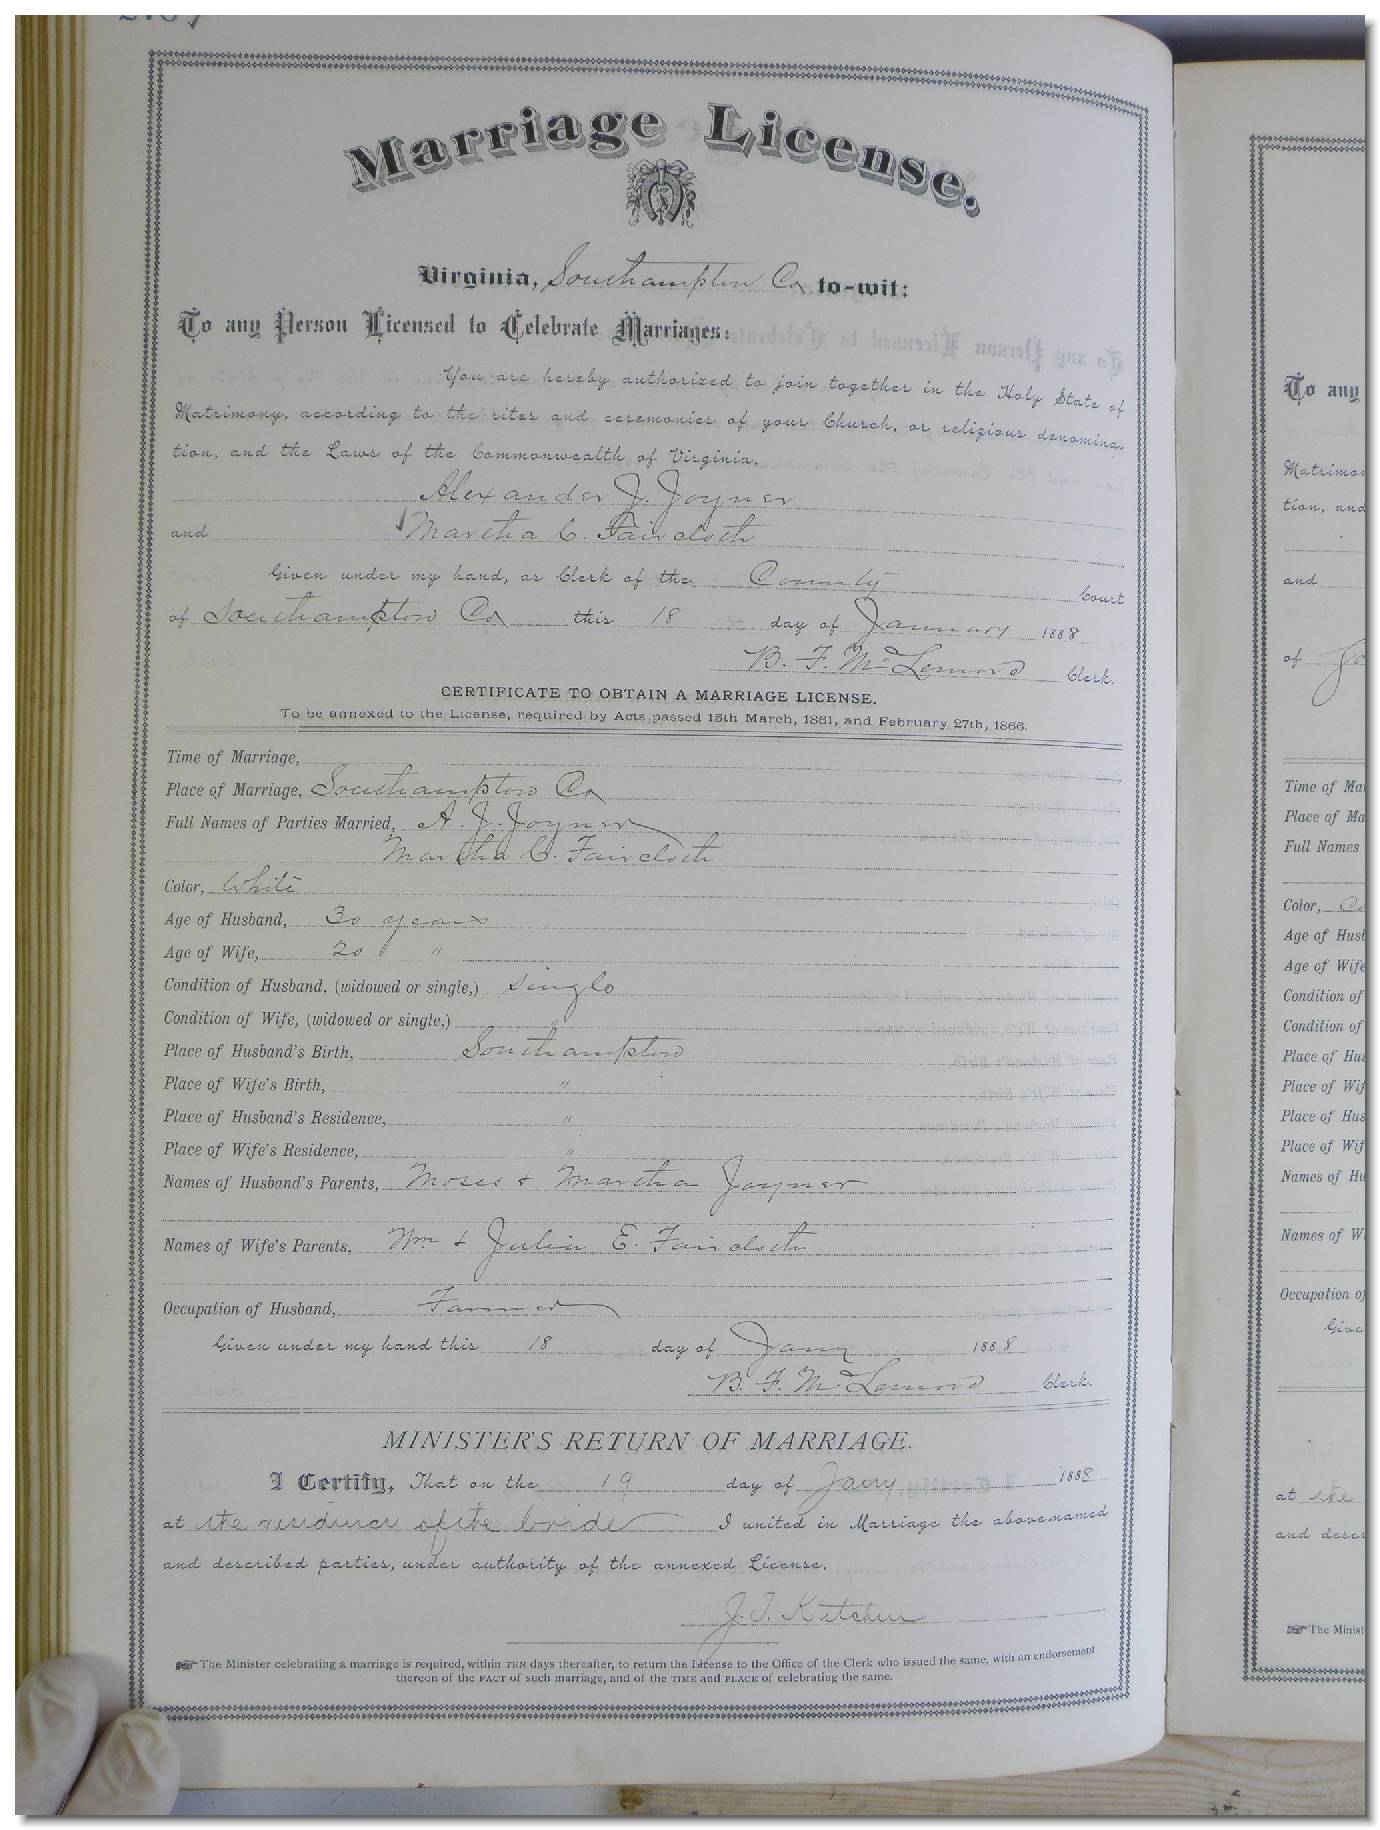 Marriage License.
Virginia, Southampton Co to-wit:
To any Person Licensed to Celebrate Marriages:
You are hereby authorized to join together in the Holy State of
Matrimony, according to the rites and ceremonies of your Church, or religious denomina-
tion, and the Laws of the Commonwealth of Virginia,
Alexander J. Joyner
and Martha C. Faircloth
Given under my hand, as Clerk of the County Court
of Southampton Co this 18 day of January 1888
B. F. McLemore Clerk.
CERTIFICATE TO OBTAIN A MARRIAGE LICENSE.
To be annexed to the License, required by Acts passed 15th March, 1861, and February 27th, 1866.
Time of Marriage,
Place of Marriage, Southampton Co
Full Names of Parties Married, A. J. Joyner
Martha C. Faircloth
Color, White
Age of Husband, 30 years
Age of Wife, 20 "
Condition of Husband, (widowed or single,) Single
Condition of Wife, (widowed or single,) "
Place of Husband's Birth, Southampton
Place of Wife's Birth, "
Place of Husband's Residence, "
Place of Wife's Residence, "
Names of Husband's Parents, Moses & Martha Joyner
Names of Wife's Parents, Wm & Julia E. Faircloth
Occupation of Husband, Farmer
Given under my hand this 18 day of Jany 1888
B. F. McLemore Clerk.
MINISTER'S RETURN OF MARRIAGE.
I Certify, That on the 19 day of Jany 1888
at the residence of the bride I united in Marriage the above named
and described parties, under authority of the annexed License.
J. T. Kitchen
☞ The Minister celebrating a marriage is required, within TEN days thereafter, to return the License to the Office of the Clerk who issued the same, with an endorsement
thereon of the FACT of such marriage, and of the TIME and PLACE of celebrating the same.
To any
Matrimo
tion, and
and
of
Time of Ma
Place of Ma
Full Names
Color, Co
Age of Husb
Age of Wife
Condition of
Condition of
Place of Hus
Place of Wif
Place of Hus
Place of Wif
Names of Hu
Names of W
Occupation of
Give
at the
and descr
☞ The Minist